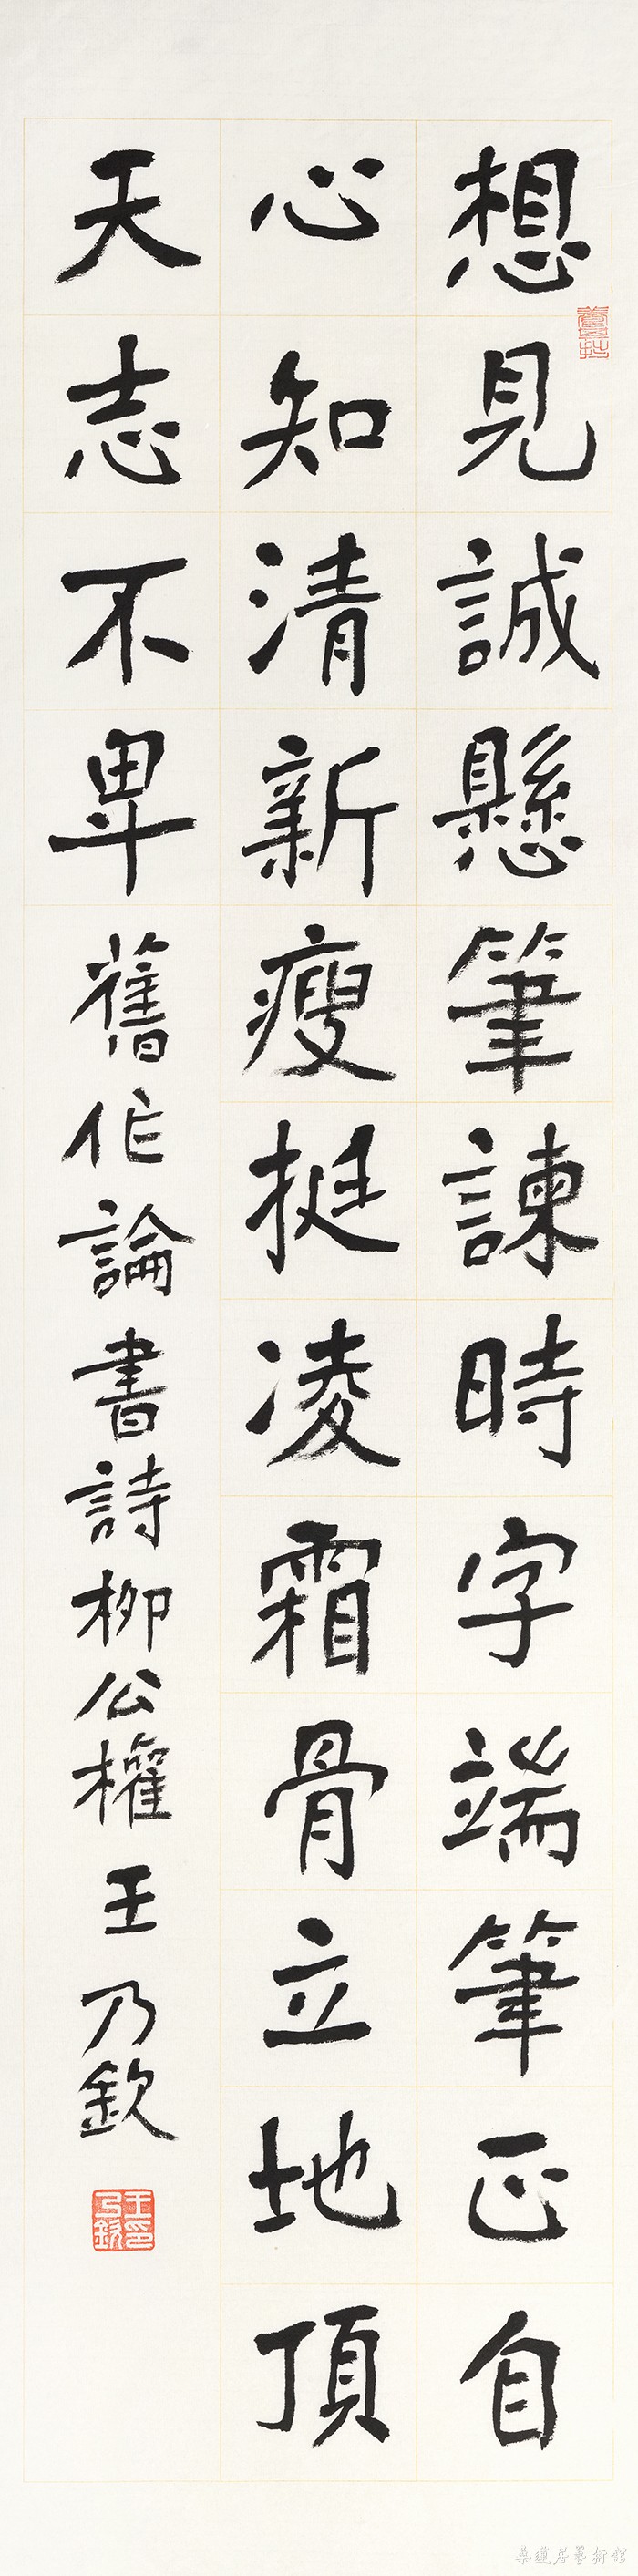 想見誠懸筆諫時字端筆正自
心知清新瘦挺凌霜骨立地頂
天志不卑舊作論書詩柳公權王乃欽
王乃欽印